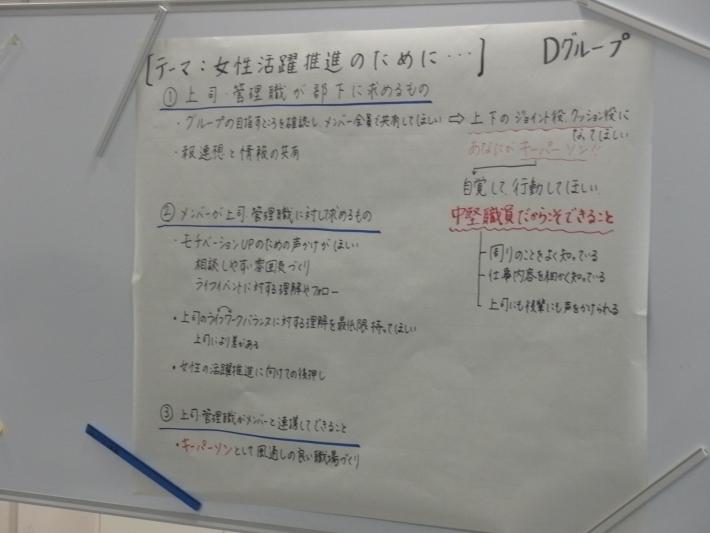 [テーマ：女性活躍推進のために…]
Dグループ
① 上司・管理職が部下に求めるもの
・グループの目指すところを確認し、メンバー全員で共有してほしい ⇨ 上下のジョイント役、クッション役に
なってほしい
あなたがキーパーソン!!
・報連想と情報の共有
自覚して、行動してほしい
中堅職員だからこそできること
周りのことをよく知っている
仕事内容を細かく知っている
上司にも後輩にも声をかけられる
② メンバーが上司・管理職に対して求めるもの
・モチベーションUPのための声かけがほしい
相談しやすい雰囲気づくり
ライフイベントに対する理解やフォロー
・上司のライフワークバランスに対する理解を最低限持ってほしい
上司により差がある
・女性の活躍推進に向けての後押し
③ 上司・管理職がメンバーと連携してできること
・キーパーソンとして風通しの良い職場づくり